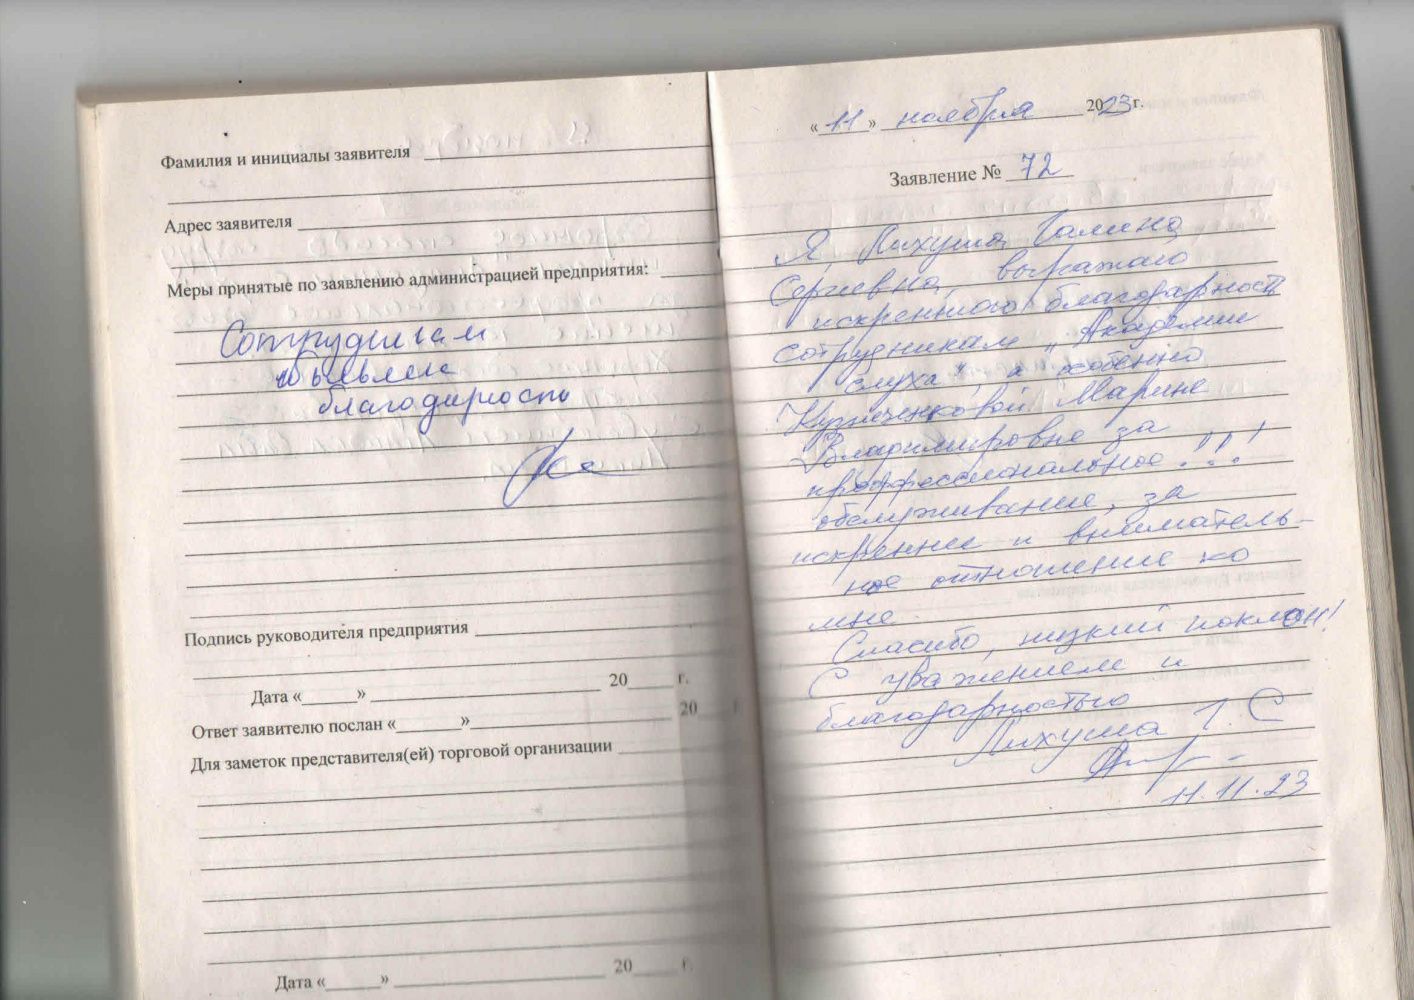 Фамилия и инициалы заявителя
Адрес заявителя
Меры принятые по заявлению администрацией предприятия:
Сотрудникам
благодарность
Подпись руководителя предприятия
Дата «      »                20      г.
Ответ заявителю послан «      »                20
Для заметок представителя(ей) торговой организации
Дата «      »                20      г.
«11» ноября 2023г.
Заявление № 72
Я, Лихуша Галина
Сергеевна, выражаю
искреннюю благодарность
сотрудникам „Академии
слуха", а особенно
Марине
Владимировне за
профессиональное!!!
обслуживание, за
искреннее и вниматель-
ное отношение ко
мне.
Спасибо, низкий поклон!
С уважением и
благодарностью
Лихуша Г. С
11.11.23